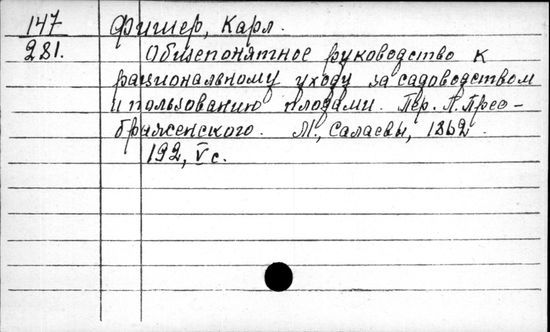 147 Фишер, Карл.
281. Общепонятное руководство к
рациональному уходу за садоводством
и пользованию плодами. Пер. П. Прео-
браженского. М., Салаевы, 1862.
192, V с.